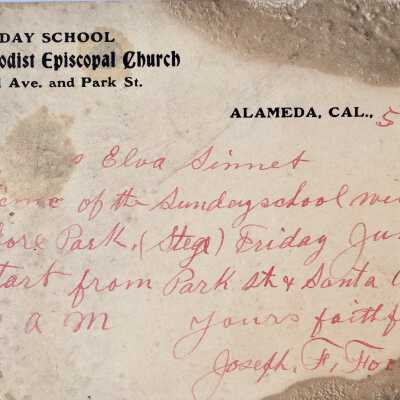 DAY SCHOOL
odist Episcopal Church
l Ave. and Park St.
ALAMEDA, CAL., 5
s Elva Sinnet
icnic of the Sundayschool wi
ore Park, (Stege) Friday Jun
tart from Park st & Santa C
A M Yours faithf
Joseph. F. For